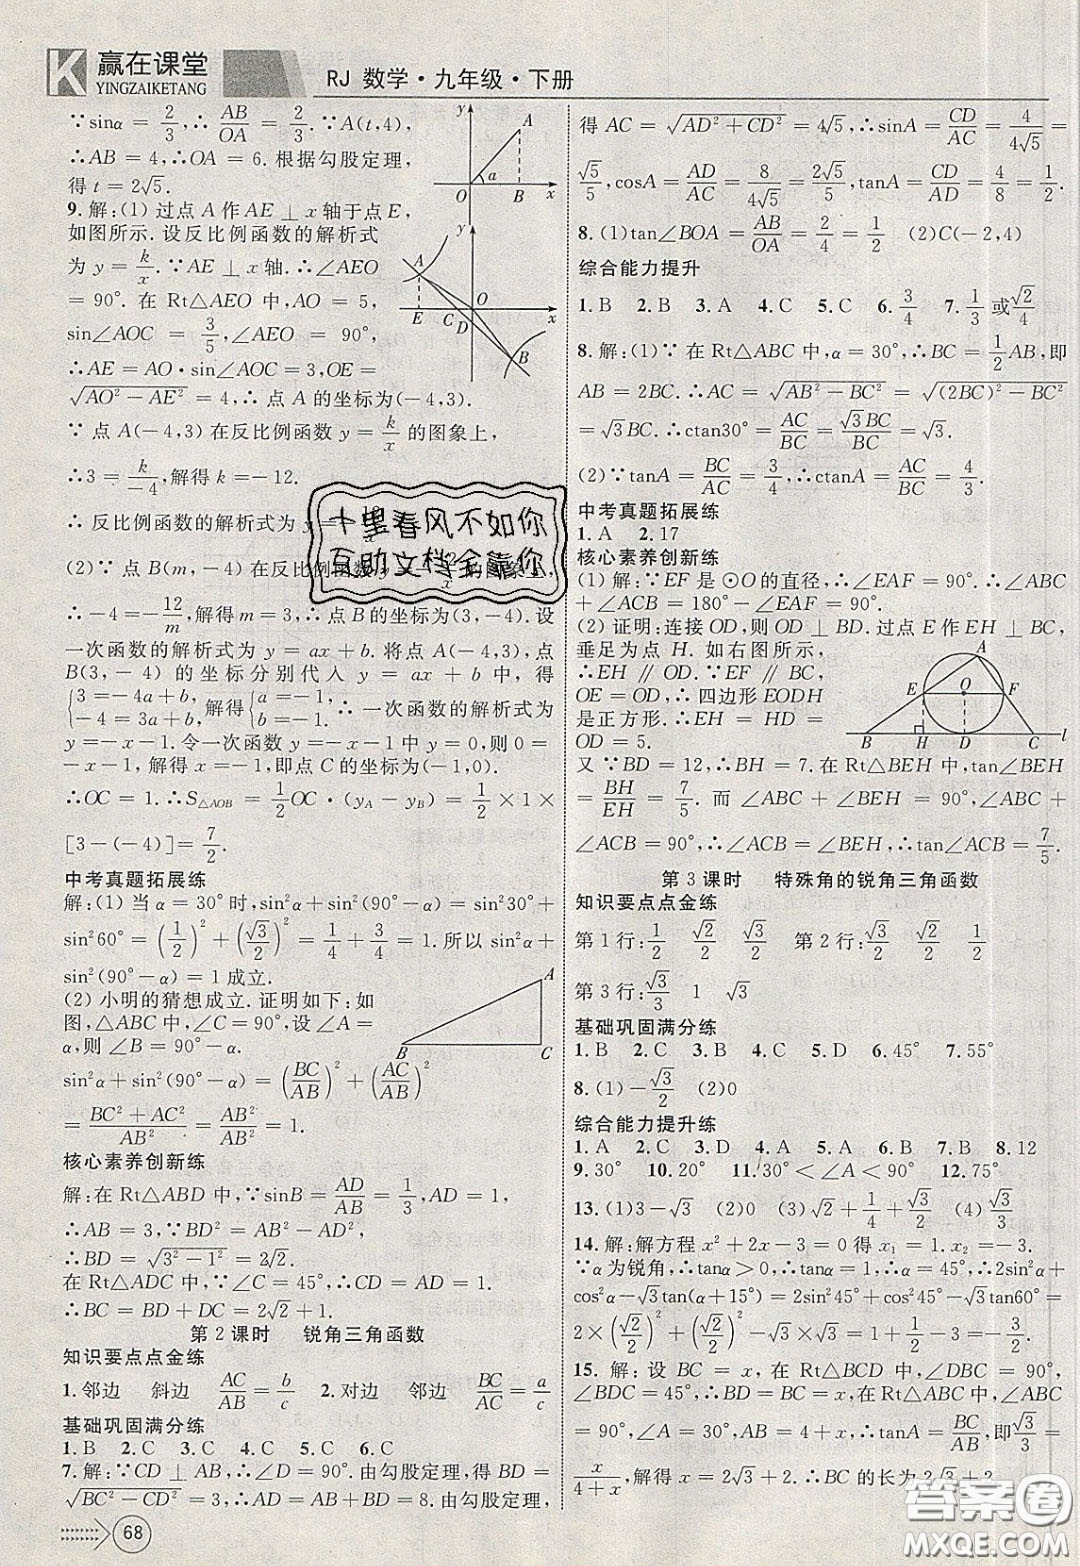 K 赢在课堂
YINGZAIKETANG
RJ 数学·九年级·下册
∵sinα=2/3,∴AB/OA=2/3.∵A(t,4),
∴AB=4,∴OA=6.根据勾股定理,
得 t=2√5.
y A α O B x
9.解:(1) 过点 A 作 AE⊥x 轴于点 E,
如图所示.设反比例函数的解析式
为 y=k/x.∵AE⊥x 轴.∴∠AEO
=90°.在 Rt△AEO 中,AO=5,
sin∠AOC=3/5,∠AEO=90°,
∴AE=AO·sin∠AOC=3,OE=
√(AO²-AE²)=4,∴点 A 的坐标为(-4,3).
y A E C D O B x
∵点 A(-4,3)在反比例函数 y=k/x 的图象上,
∴3=k/-4,解得 k=-12.
∴反比例函数的解析式为 y=
(2)∵点 B(m,-4)在反比例函数 的图象上,
∴-4=-12/m,解得 m=3,∴点 B 的坐标为(3,-4).设
一次函数的解析式为 y=ax+b.将点 A(-4,3),点
B(3,-4)的坐标分别代入 y=ax+b 中,得
{3=-4a+b, -4=3a+b, 解得{a=-1, b=-1, ∴一次函数的解析式为
y=-x-1.令一次函数 y=-x-1 中 y=0,则 0=
-x-1,解得 x=-1,即点 C 的坐标为(-1,0).
∴OC=1.∴S△AOB=1/2 OC·(yA-yB)=1/2×1×
[3-(-4)]=7/2.
中考真题拓展练
解:(1)当 α=30°时,sin²α+sin²(90°-α)=sin²30°+
sin²60°=(1/2)²+(√3/2)²=1/4+3/4=1.所以 sin²α+
sin²(90°-α)=1 成立.
(2) 小明的猜想成立.证明如下:如
图,△ABC 中,∠C=90°,设∠A=
α,则∠B=90°-α.
A B C
sin²α+sin²(90°-α)=(BC/AB)²+(AC/AB)²
=(BC²+AC²)/AB²=AB²/AB²=1.
核心素养创新练
解:在 Rt△ABD 中,∵sinB=AD/AB=1/3,AD=1,
∴AB=3,∵BD²=AB²-AD²,
∴BD=√(3²-1²)=2√2.
在 Rt△ADC 中,∵∠C=45°,∴CD=AD=1.
∴BC=BD+DC=2√2+1.
第 2 课时 锐角三角函数
知识要点点金练
1.邻边 斜边 AC/AB b/c 2.对边 邻边 BC/AC a/b
基础巩固满分练
1.B 2.C 3.C 4.A 5.C 6.C
7.解:∵CD⊥AB,∴∠BDC=90°.由勾股定理,得 BD=
√(BC²-CD²)=3,∴AD=AB-BD=8.由勾股定理,
得 AC=√(AD²+CD²)=4√5,∴sinA=CD/AC=4/4√5=
√5/5,cosA=AD/AC=8/4√5=2√5/5,tanA=CD/AD=4/8=1/2.
8.(1)tan∠BOA=AB/OA=2/4=1/2 (2)C(-2,4)
综合能力提升
1.B 2.B 3.A 4.C 5.C 6.3/4 7.1/3或√2/4
8.解:(1)∵在 Rt△ABC 中,α=30°,∴BC=1/2AB,即
AB=2BC.∴AC=√(AB²-BC²)=√((2BC)²-BC²)
=√3BC.∴ctan30°=AC/BC=√3BC/BC=√3.
(2)∵tanA=BC/AC=3/4,∴ctanA=AC/BC=4/3.
中考真题拓展练
1.A 2.17
核心素养创新练
(1)解:∵EF 是⊙O 的直径,∴∠EAF=90°.∴∠ABC
+∠ACB=180°-∠EAF=90°.
(2)证明:连接 OD,则 OD⊥BD.过点 E 作 EH⊥BC,
垂足为点 H.如右图所示,
∴EH∥OD.∵EF∥BC,
OE=OD,∴四边形 EODH
是正方形.∴EH=HD=
OD=5.
A E O F B H D C l
又∵BD=12,∴BH=7.在 Rt△BEH 中,tan∠BEH
=BH/EH=7/5.而∠ABC+∠BEH=90°,∠ABC+
∠ACB=90°,∴∠ACB=∠BEH,∴tan∠ACB=7/5.
第 3 课时 特殊角的锐角三角函数
知识要点点金练
第 1 行:1/2 √2/2 √3/2 第 2 行:√3/2 √2/2 1/2
第 3 行:√3/3 1 √3
基础巩固满分练
1.B 2.C 3.B 4.C 5.D 6.45° 7.55°
8.(1)-√3/2 (2)0
综合能力提升练
1.A 2.C 3.D 4.A 5.A 6.B 7.B 8.12
9.30° 10.20° 11.30°<∠A<90° 12.75°
13.(1)3-√3 (2)0 (3)√2+1/4+√3/2 (4)√3/3
14.解:解方程 x²+2x-3=0得 x₁=1.x₂=-3.
∵α为锐角,∴tanα>0,∴tanα=1,∴α=45°,∴2sin²α+
cos²α-√3tan(α+15°)=2sin²45°+cos²45°-√3tan60°=
2×(√2/2)²+(√2/2)²-√3×√3=1+1/2-3=-3/2.
15.解:设 BC=x,在 Rt△BCD 中,∠DBC=90°,
∠BDC=45°,∴BD=BC=x.在 Rt△ABC 中,∠ABC
=90°,∠A=30°,AB=4+x,∴tanA=BC/AB,即√3/3=
x/(4+x),解得 x=2√3+2,∴BC 的长为2√3+2.
十里春风不如你
互助文档全靠你
68
答案圈
MXQE.COM